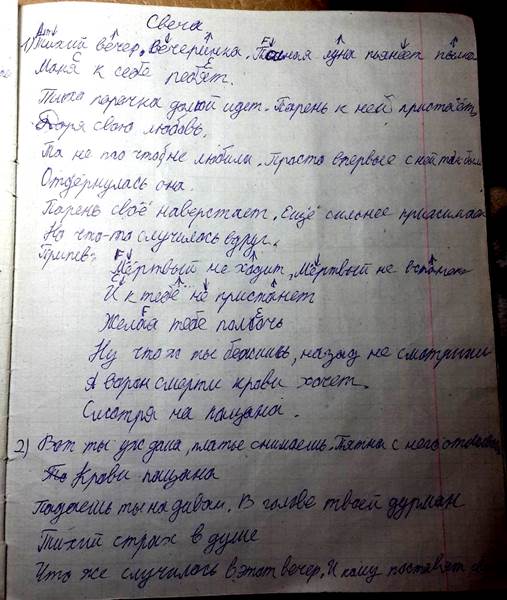 Свеча
Am
F
1) Тихий вечер, вечеринка. Полная луна пьянеет
C
E
Маня к себе ребят.
Тиха парочка домой идет. Парень к ней пристаёт,
Даря свою любовь.
Та не то чтоб не любила. Просто впервые с ней так было
Отдёрнулась она.
Парень своё наверстает. Ещё сильнее
Но что-то случилось вдруг.
Припев:
F
Мёртвый не ходит, Мёртвый не встанет
C
И к тебе не пристанет
F
E
Желая тебе помочь
Ну что ж ты бежишь, назад не смотришь
А ворон смерти крови хочет.
Смотря на пацана.
2) Вот ты уж дома, платье снимаешь. Пятна с него
Крови пацана
Падаешь ты на диван. В голове твоей дурман
Тихий страх в душе
Что же случилось в этот вечер. И кому поставят